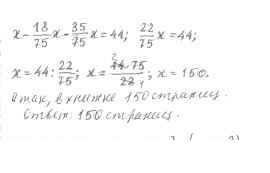 x - 18/75 x - 35/75 x = 44; 22/75 x = 44;
x = 44 : 22/75; x = 44·75/22; x = 150.
Итак, в книжке 150 страниц.
Ответ: 150 страниц.